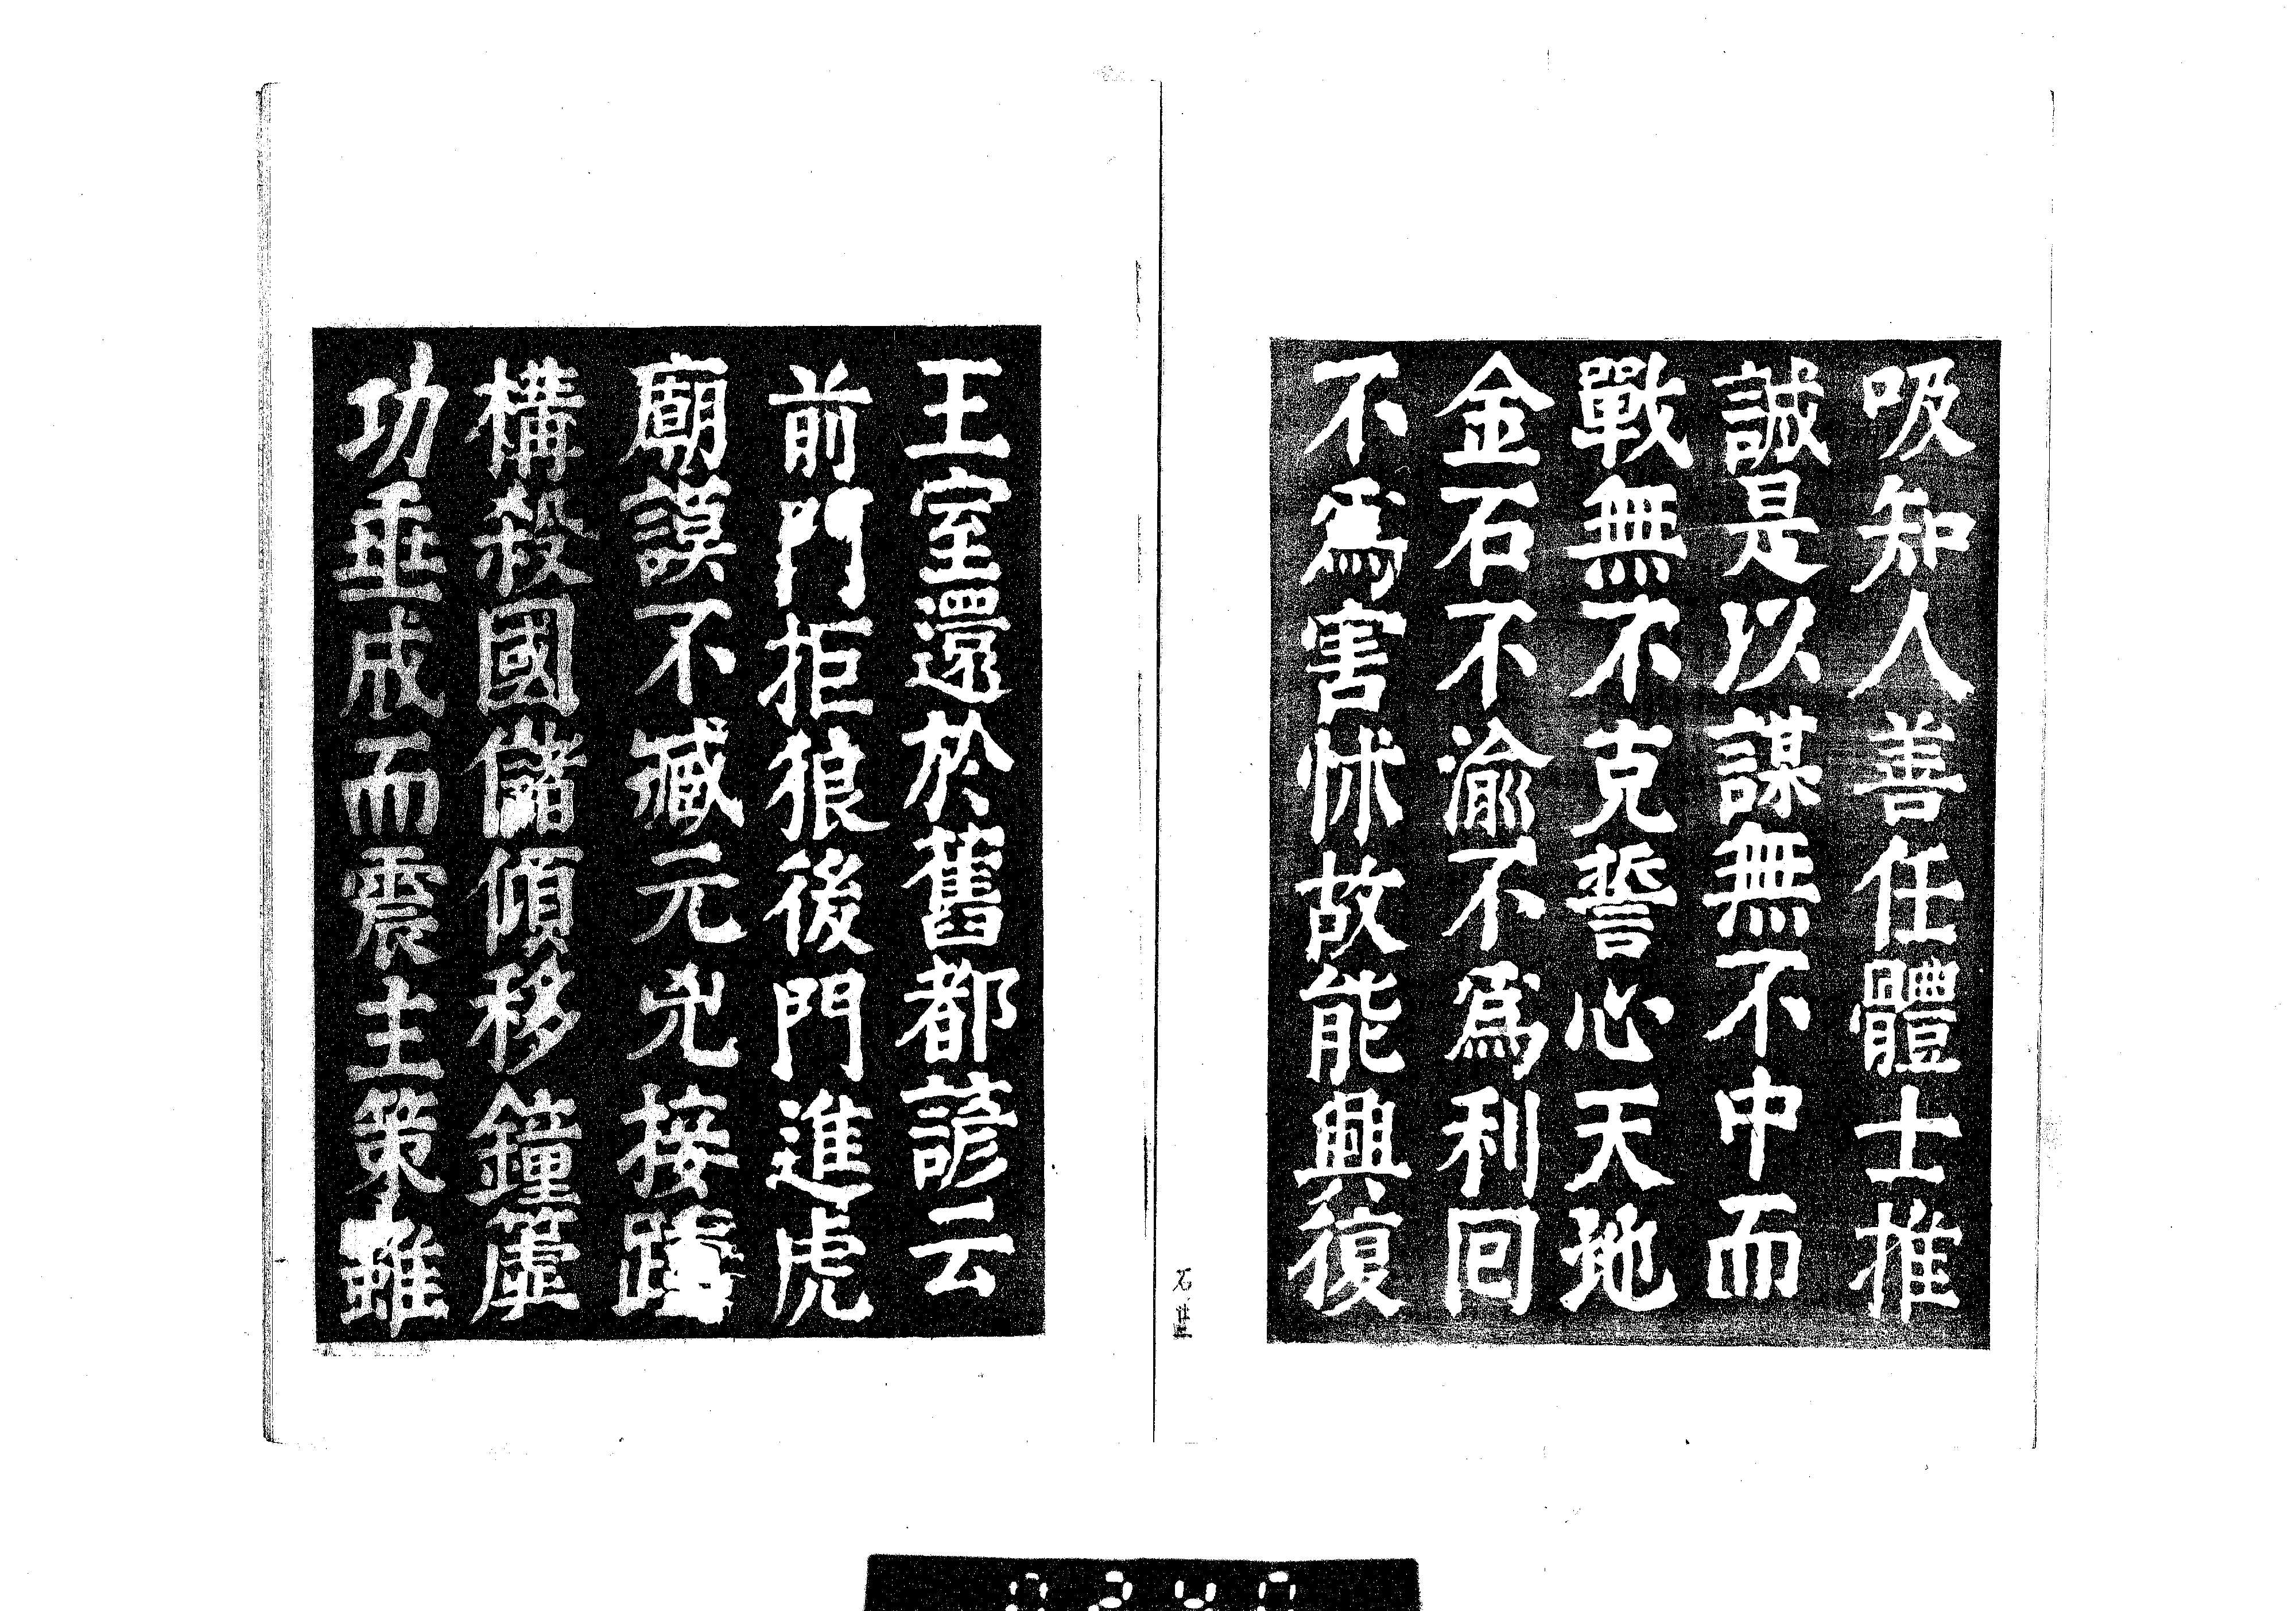 吸知人善任體士推
誠是以謀無不中而
戰無不克誓心天地
金石不渝不爲利回
不爲害怵故能興復
王室還於舊都諺云
前門拒狼後門進虎
廟謨不臧元兇接蹱
構殺國儲傾移鐘虡
功垂成而震主策雖
石井